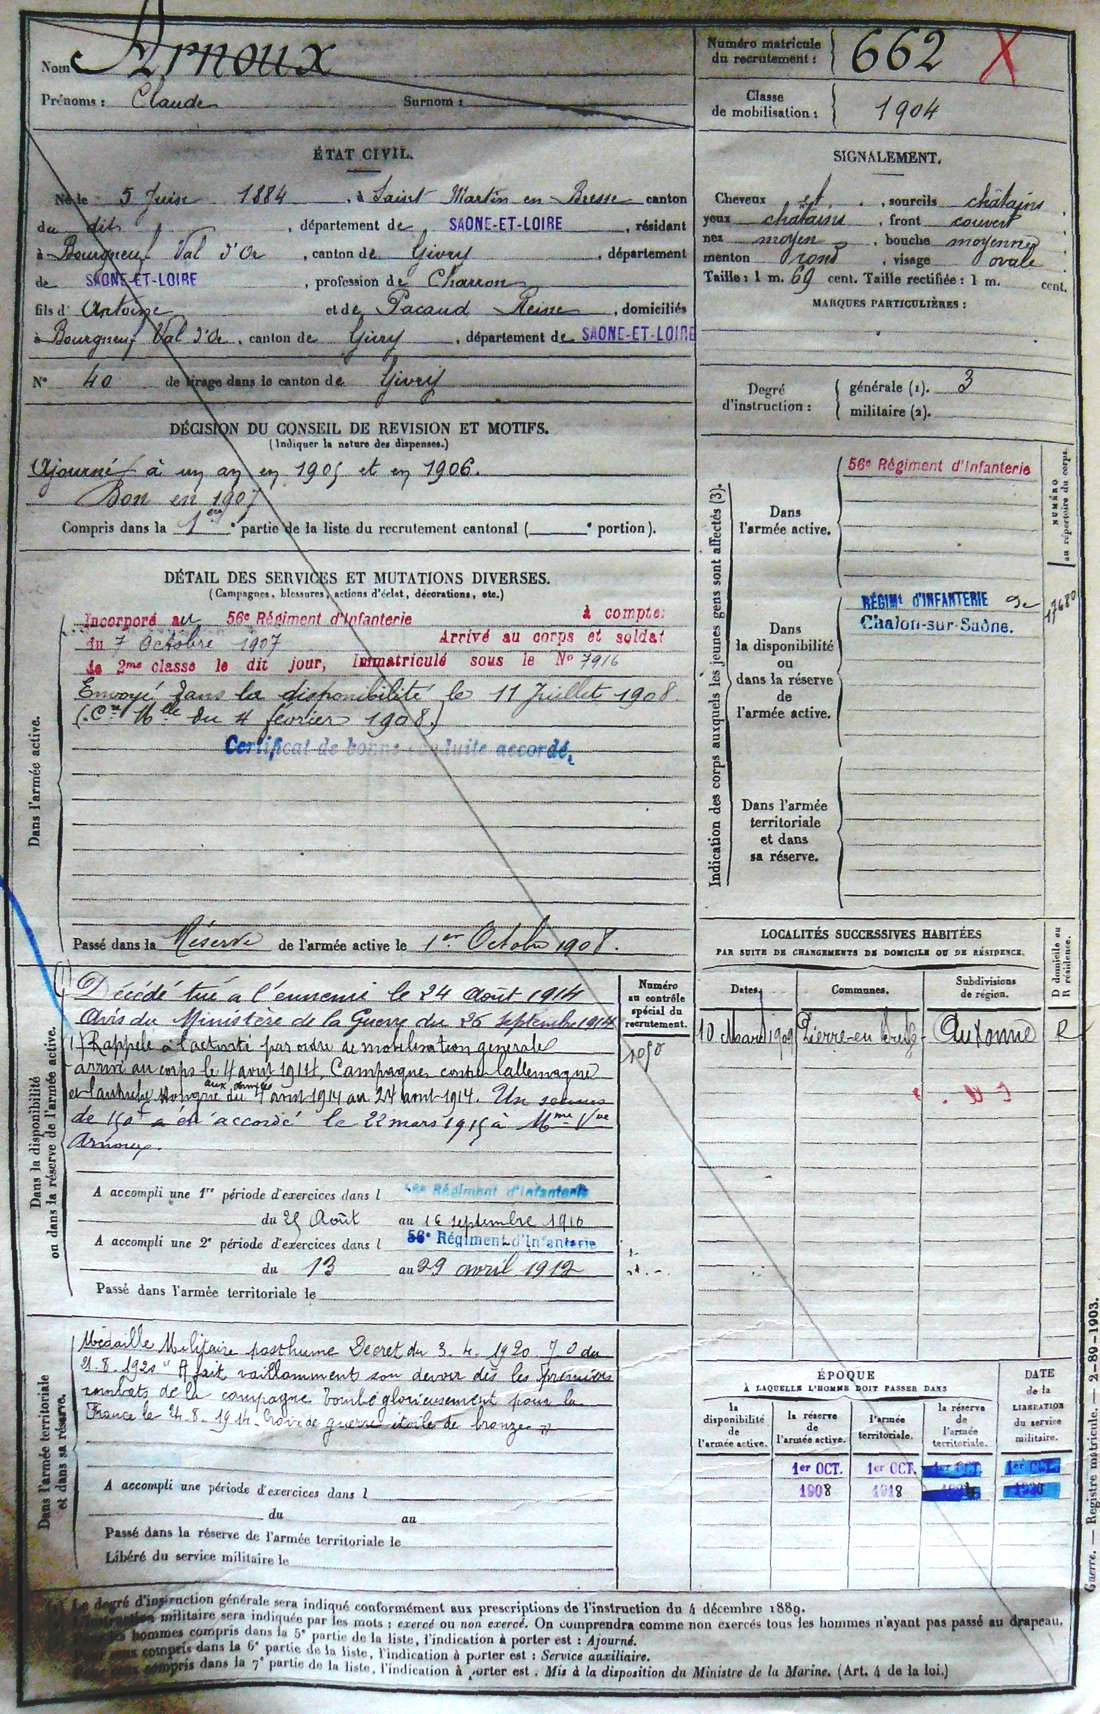 Nom Arnoux
Prénoms : Claude Surnom :
Numéro matricule
du recrutement : 662 X
Classe
de mobilisation : 1904
ÉTAT CIVIL.
Né le 5 Juin 1884, à Saint Martin en Bresse canton
du dit, département de SAONE-ET-LOIRE, résidant
à Bourgneuf Val d'Or, canton de Givry, département
de SAONE-ET-LOIRE, profession de Charron
fils d' Antoine et de Pacaud Reine, domiciliés
à Bourgneuf Val d'Or, canton de Givry, département de SAONE-ET-LOIRE
N° 40 de tirage dans le canton de Givry
SIGNALEMENT.
Cheveux et, sourcils châtains,
yeux châtains, front couvert
nez moyen, bouche moyenne
menton rond, visage ovale
Taille : 1 m. 69 cent. Taille rectifiée : 1 m. cent.
MARQUES PARTICULIÈRES :
Degré
d'instruction :
générale (1). 3
militaire (2).
DÉCISION DU CONSEIL DE REVISION ET MOTIFS.
(Indiquer la nature des dispenses.)
Ajourné à un an en 1905 et en 1906.
Bon en 1907
Compris dans la 1ère partie de la liste du recrutement cantonal ( e portion).
DÉTAIL DES SERVICES ET MUTATIONS DIVERSES.
(Campagnes, blessures, actions d'éclat, décorations, etc.)
Dans l'armée active.
Incorporé au 56e Régiment d'Infanterie à compter
du 7 Octobre 1907 Arrivé au corps et soldat
de 2me classe le dit jour, Immatriculé sous le No 7916
Envoyé dans la disponibilité le 11 Juillet 1908
(Cre Mlle du 4 février 1908.)
Certificat de bonne conduite accordé.
Passé dans la Réserve de l'armée active le 1er Octobre 1908.
Indication des corps auxquels les jeunes gens sont affectés (3).
NUMÉRO
au répertoire du corps.
Dans
l'armée active.
56e Régiment d'Infanterie
Dans
la disponibilité
ou
dans la réserve
de
l'armée active.
RÉGIMt D'INFANTERIE
Chalon-sur-Saône.
Dans l'armée
territoriale
et dans
sa réserve.
Dans la disponibilité
ou dans la réserve de l'armée active.
Décédé tué à l'ennemi le 24 Août 1914
Avis du Ministère de la Guerre du 26 septembre 1914
(1) Rappelé à l'activité par ordre de mobilisation générale
arrivé au corps le 4 août 1914. Campagnes contre l'allemagne
aux armées
et l'autriche Hongrie du 4 août 1914 au 24 août 1914. Un secours
de 150f a été accordé le 22 mars 1915 à Mme Vve
Arnoux.
Numéro
au contrôle
spécial du
recrutement.
1050
A accompli une 1re période d'exercices dans l 56e Régiment d'Infanterie
du 25 Août au 16 septembre 1910
A accompli une 2e période d'exercices dans l 56e Régiment d'Infanterie
du 13 au 29 avril 1912
Passé dans l'armée territoriale le
LOCALITÉS SUCCESSIVES HABITÉES
PAR SUITE DE CHANGEMENTS DE DOMICILE OU DE RÉSIDENCE.
Dates. Communes. Subdivisions
de région.
D domicile ou
R résidence.
10 Mars 1909 Pierre-en Bresse Auxonne R
Dans l'armée territoriale
et dans sa réserve.
Médaille Militaire posthume Décret du 3. 4. 1920 J O du
21. 8. 1920 " A fait vaillamment son devoir dès les premiers
combats de la campagne tombé glorieusement pour la
France le 24. 8. 1914. Croix de guerre étoile de bronze "
A accompli une période d'exercices dans l
du au
Passé dans la réserve de l'armée territoriale le
Libéré du service militaire le
ÉPOQUE
À LAQUELLE L'HOMME DOIT PASSER DANS
DATE
de la
LIBÉRATION
du service
militaire.
la
disponibilité
de
l'armée active.
la réserve
de
l'armée active.
l'armée
territoriale.
la réserve
de
l'armée
territoriale.
1er OCT. 1er OCT. 1er OCT. 1er OCT.
1908 1918
Guerre. — Registre matricule. — 2-89-1903.
Le degré d'instruction générale sera indiqué conformément aux prescriptions de l'instruction du 4 décembre 1889.
militaire sera indiquée par les mots : exercé ou non exercé. On comprendra comme non exercés tous les hommes n'ayant pas passé au drapeau.
hommes compris dans la 5e partie de la liste, l'indication à porter est : Ajourné.
compris dans la 6e partie de la liste, l'indication à porter est : Service auxiliaire.
compris dans la 7e partie de la liste, l'indication à porter est : Mis à la disposition du Ministre de la Marine. (Art. 4 de la loi.)